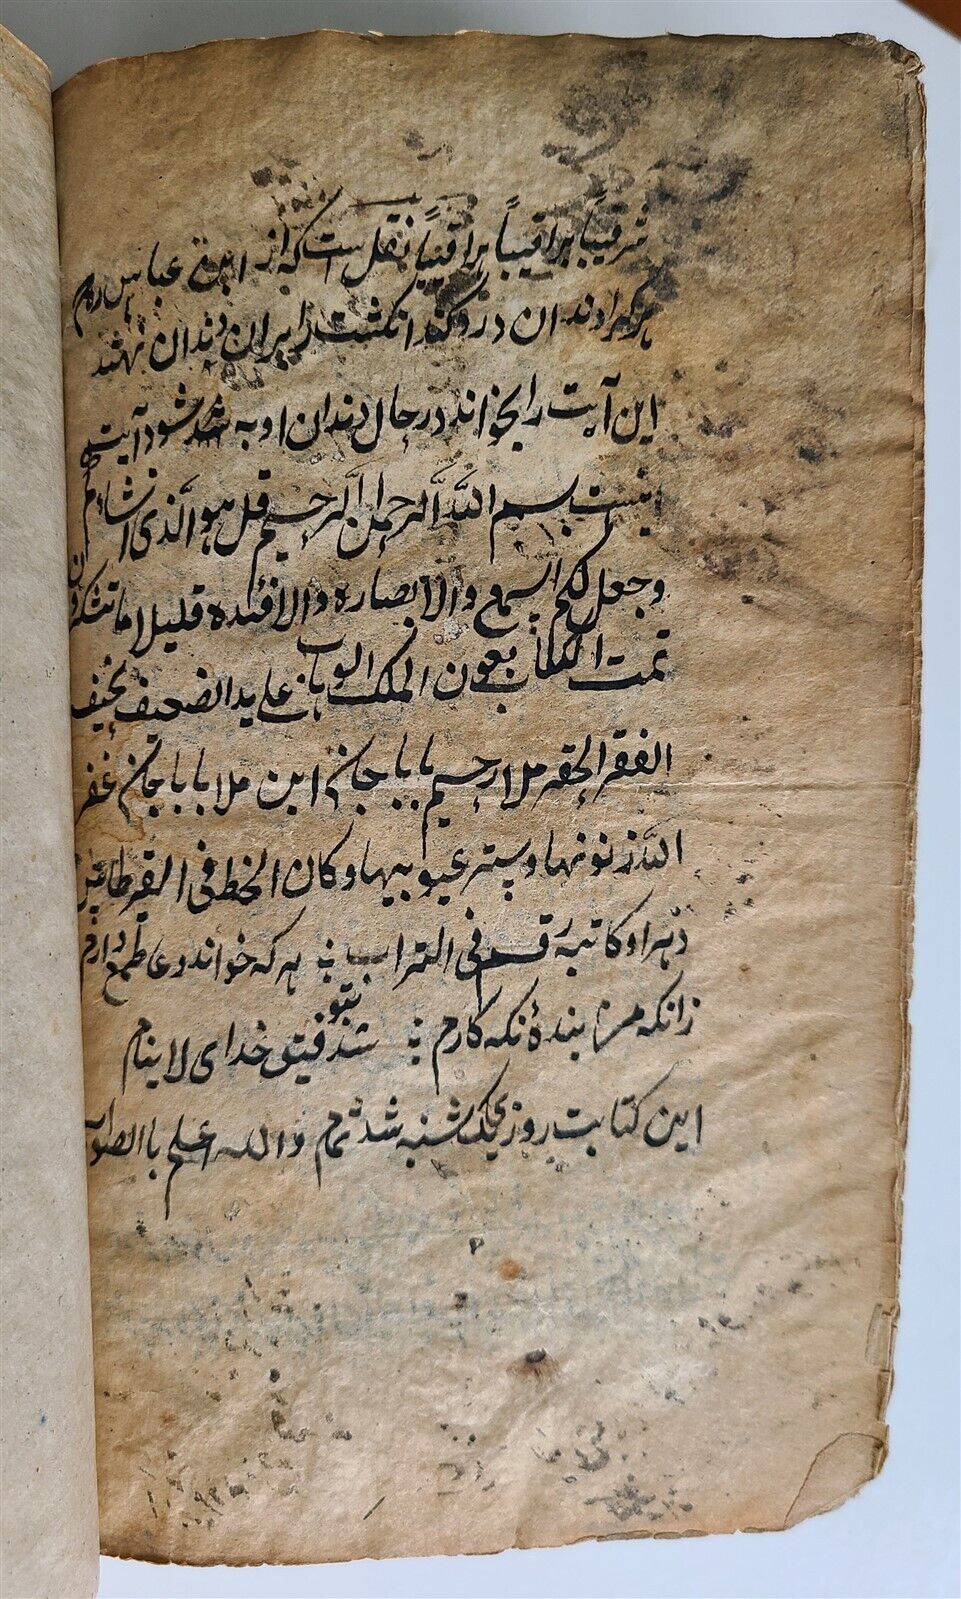 شرقیباً براقیباً براقیباً نقل است که از ابن عباس رض
هر کرا دندان درد کند انکشت را بران دندان نهند
این آیت را بخواند در حال دندان او به شد شود آیت
اینست بسم الله الرحمن الرحیم قل هو الذی انشاءکم
وجعل لکم السمع والا بصاره والافئده قلیلا ما تشکرون
تمت الکتاب بعون الملک الوهاب علی ید الضعیف نحیف
الفقر الحقر ملا رحیم بابا جان ابن ملا بابا جان غفر
الله زنونها وستر عیوبیها وکان الخط فی القرطاس
دهرا وکاتبه رقم فی التراب هر که خواند دعا طمع دارم
زانکه من بندهٔ نکه کارم شد بتوفیق خدای لاینام
این کتابت روز یکشنبه شد تمام والله اعلم باالصواب